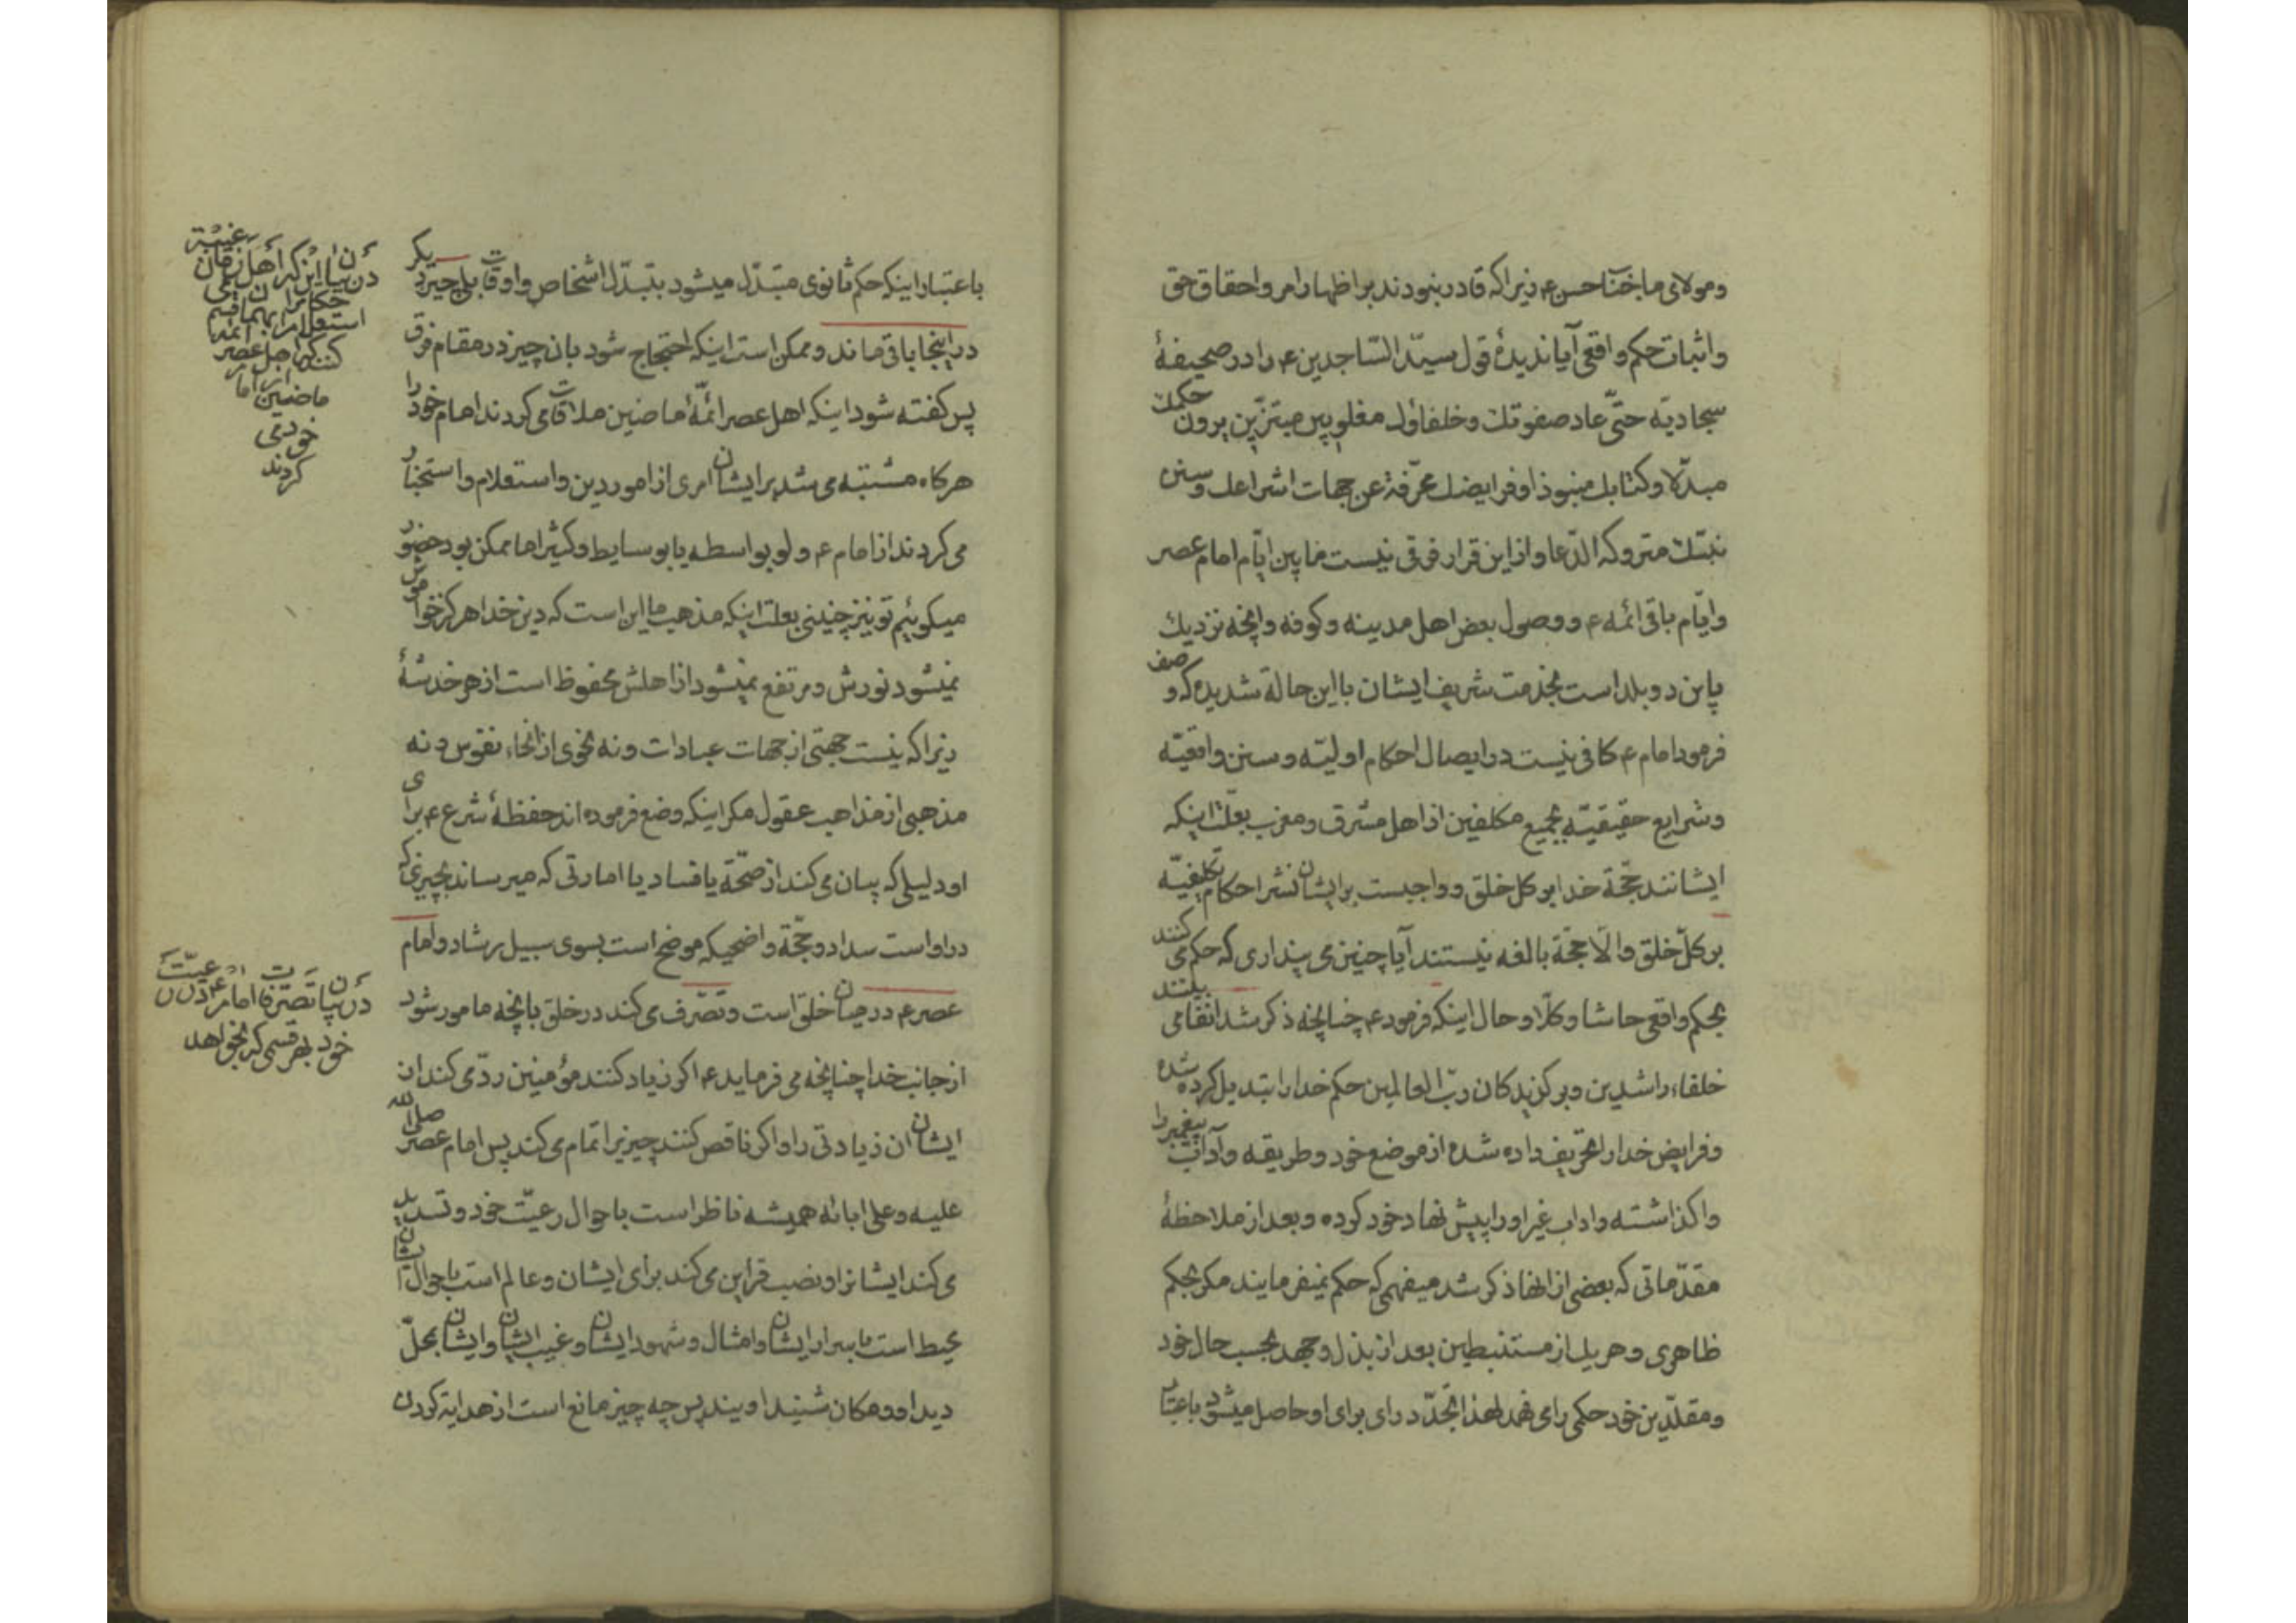 ومولای ما جناب حسن ع زیرا که قادر نبودند بر اظهار امر واحقاق حق
واثبات حکم واقعی آیا ندیدهٔ قول سید الساجدین ع را در صحیفهٔ
سجادیّه حتّی عاد صفوتك وخلفاؤك مغلوبین مبتزّین یرون حکمك
مبدّلا وکتابك منبوذا وفرایضك محرّفة عن جهات اشراعك وسنن
نبیّك متروکه الدّعا واز این قرار فرقی نیست مابین ایّام امام عصر
وایّام باقی ائمه ع ووصول بعض اهل مدینه وکوفه وآنچه نزدیك
باین دو بلد است بخدمت شریف ایشان با این حالة شدیده که وصف
فرمود امام ع کافی نیست در ایصال احکام اولیّه وسنن واقعیّه
وشرایع حقیقیّه بجمیع مکلفین از اهل مشرق ومغرب بعلّت اینکه
ایشانند حجّة خدا بر کل خلق وواجبست بر ایشان نشر احکام تکلیفیّه
بر کلّ خلق والّا حجّة بالغه نیستند آیا چنین می پنداری که حکم می کنند
بحکم واقعی حاشا وکلّا وحال اینکه فرمود ع چنانچه ذکر شد انفا می بینند
خلفاء راشدین وبرگزیدکان ربّ العالمین حکم خدا را تبدیل کرده شده
وفرایض خدا را تحریف داده شده از موضع خود وطریقه وآداب پیغمبر را
واگذاشته واداب غیر او را پیش نهاد خود کرده وبعد از ملاحظهٔ
مقدّماتی که بعضی از انها ذکر شد میفهمی که حکم نمیفرمایند مکر بحکم
ظاهری وهر یك از مستنبطین بعد از بذل وجهد بحسب حال خود
ومقلّدین خود حکمی را می فهمد لهذا تجدّد رای برای او حاصل میشود باعتبار
باعتبار اینکه حکم ثانوی متبدّل میشود بتبدّل اشخاص واوقات بلی چیز دیکر
در اینجا باقی ماند وممکن است اینکه احتجاج شود بان چیز در مقام فرق
پس کفته شود اینکه اهل عصر ائمّهٔ ماضین ملاقات می کردند امام خود را
هرکاه مشتبه می شد بر ایشان امری از امور دین واستعلام واستخبار
می کردند از امام ع ولو بواسطه یا بوسایط وکثیرا ما ممکن بود حضور
میکوئیم تو نیز چنینی بعلت اینکه مذهب ما این است که دین خدا هرکز خواموش
نمیشود نورش ومرتفع نمیشود از اهلش محفوظ است از هر خدشهٔ
زیرا که نیست جهتی از جهات عبادات ونه نحوی از انحاء نفوس ونه
مذهبی از مذاهب عقول مکر اینکه وضع فرموده اند حفظهٔ شرع ع برای
او دلیلی که بیان می کند از صحّة یا فساد یا امارتی که میرساند بچیزی که
در او است سداد وحجّة واضحیکه موضح است بسوی سبیل رشاد وامام
عصر ع در میان خلق است وتصّرف می کند در خلق بانچه مامور شود
از جانب خدا چنانچه می فرماید ع اکر زیاد کنند مؤمنین ردّ می کند ان
ایشان ان زیادتی را واکر ناقص کنند چیزیرا تمام می کند پس امام عصر صلی الله
علیه وعلی ابائه همیشه ناظر است باحوال رعیّت خود وتسدید
می کند ایشانرا ونصب قراین می کند برای ایشان وعالم است باحوال ایشان
محیط است باسرار ایشان وامثال وشهود ایشان وغیب ایشان وایشان بمحلّ
دید او ومکان شنید اویند پس چه چیز مانع است از هدایة کردن
در بیان این که اهل زمان غیبة
استعلام
کنند که اهل عصر
ماضین
خود می
کردند
در بیان تصرّفات امام ع در رعیّت
خود بهر قسمی که بخواهد